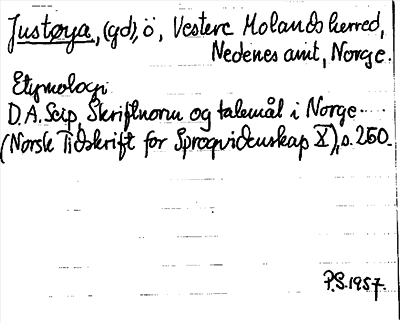 Justøya, (gd), ö, Vestere Molands herred,
Nedenes amt, Norge.
Etymologi
D.A. Seip, Skriftnorm og talemål i Norge
(Norsk Tidskrift for Sprogvidenskap X), s. 250.
P.S. 1957.